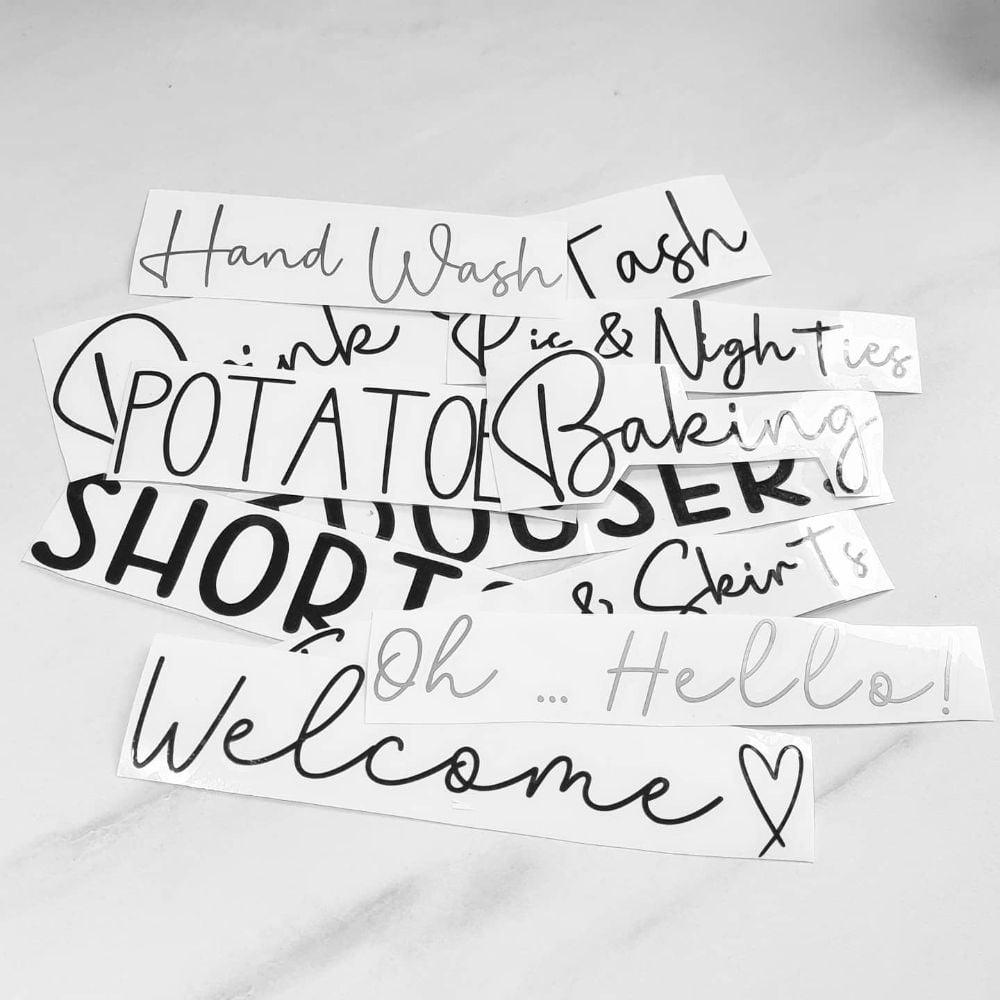 Hand Wash
Tash
Drink
Pic & NighTies
POTATOE
Baking
SHORTS
& SkirTs
Oh ... Hello!
Welcome